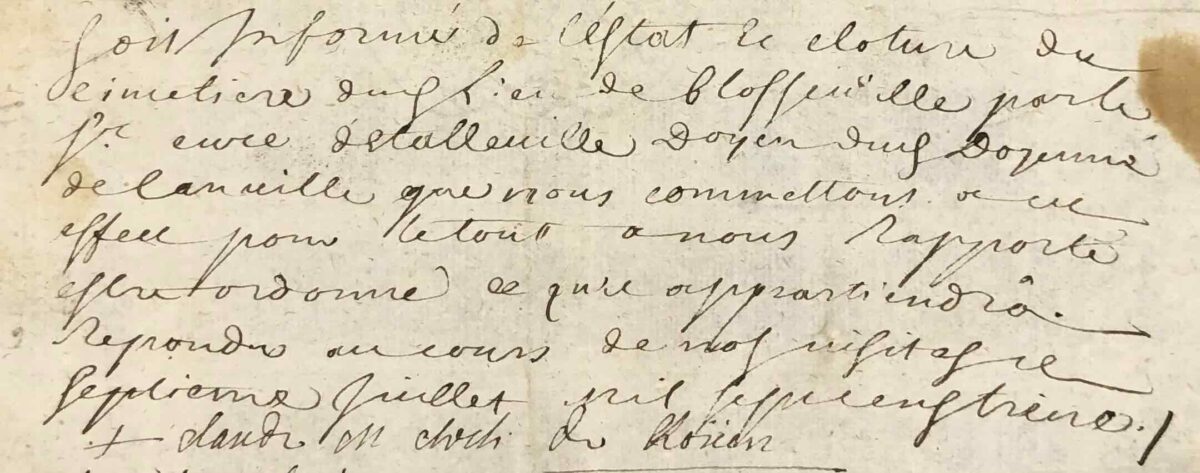 Soit Informé de l'Estat et cloture du
cimetiere dud. Lieu de blosseville par le
Sr. curé d'Etalleville Doyen dud Doyenné
de Canuille que nous commettons a cet
effect pour le tout a nous Rapporté
estre ordonné ce qu'il appartiendrà.
Repondu au cours de nos uisites ce
septieme Juillet mil sept cens treize./
+ claude m. arch. de Roüen